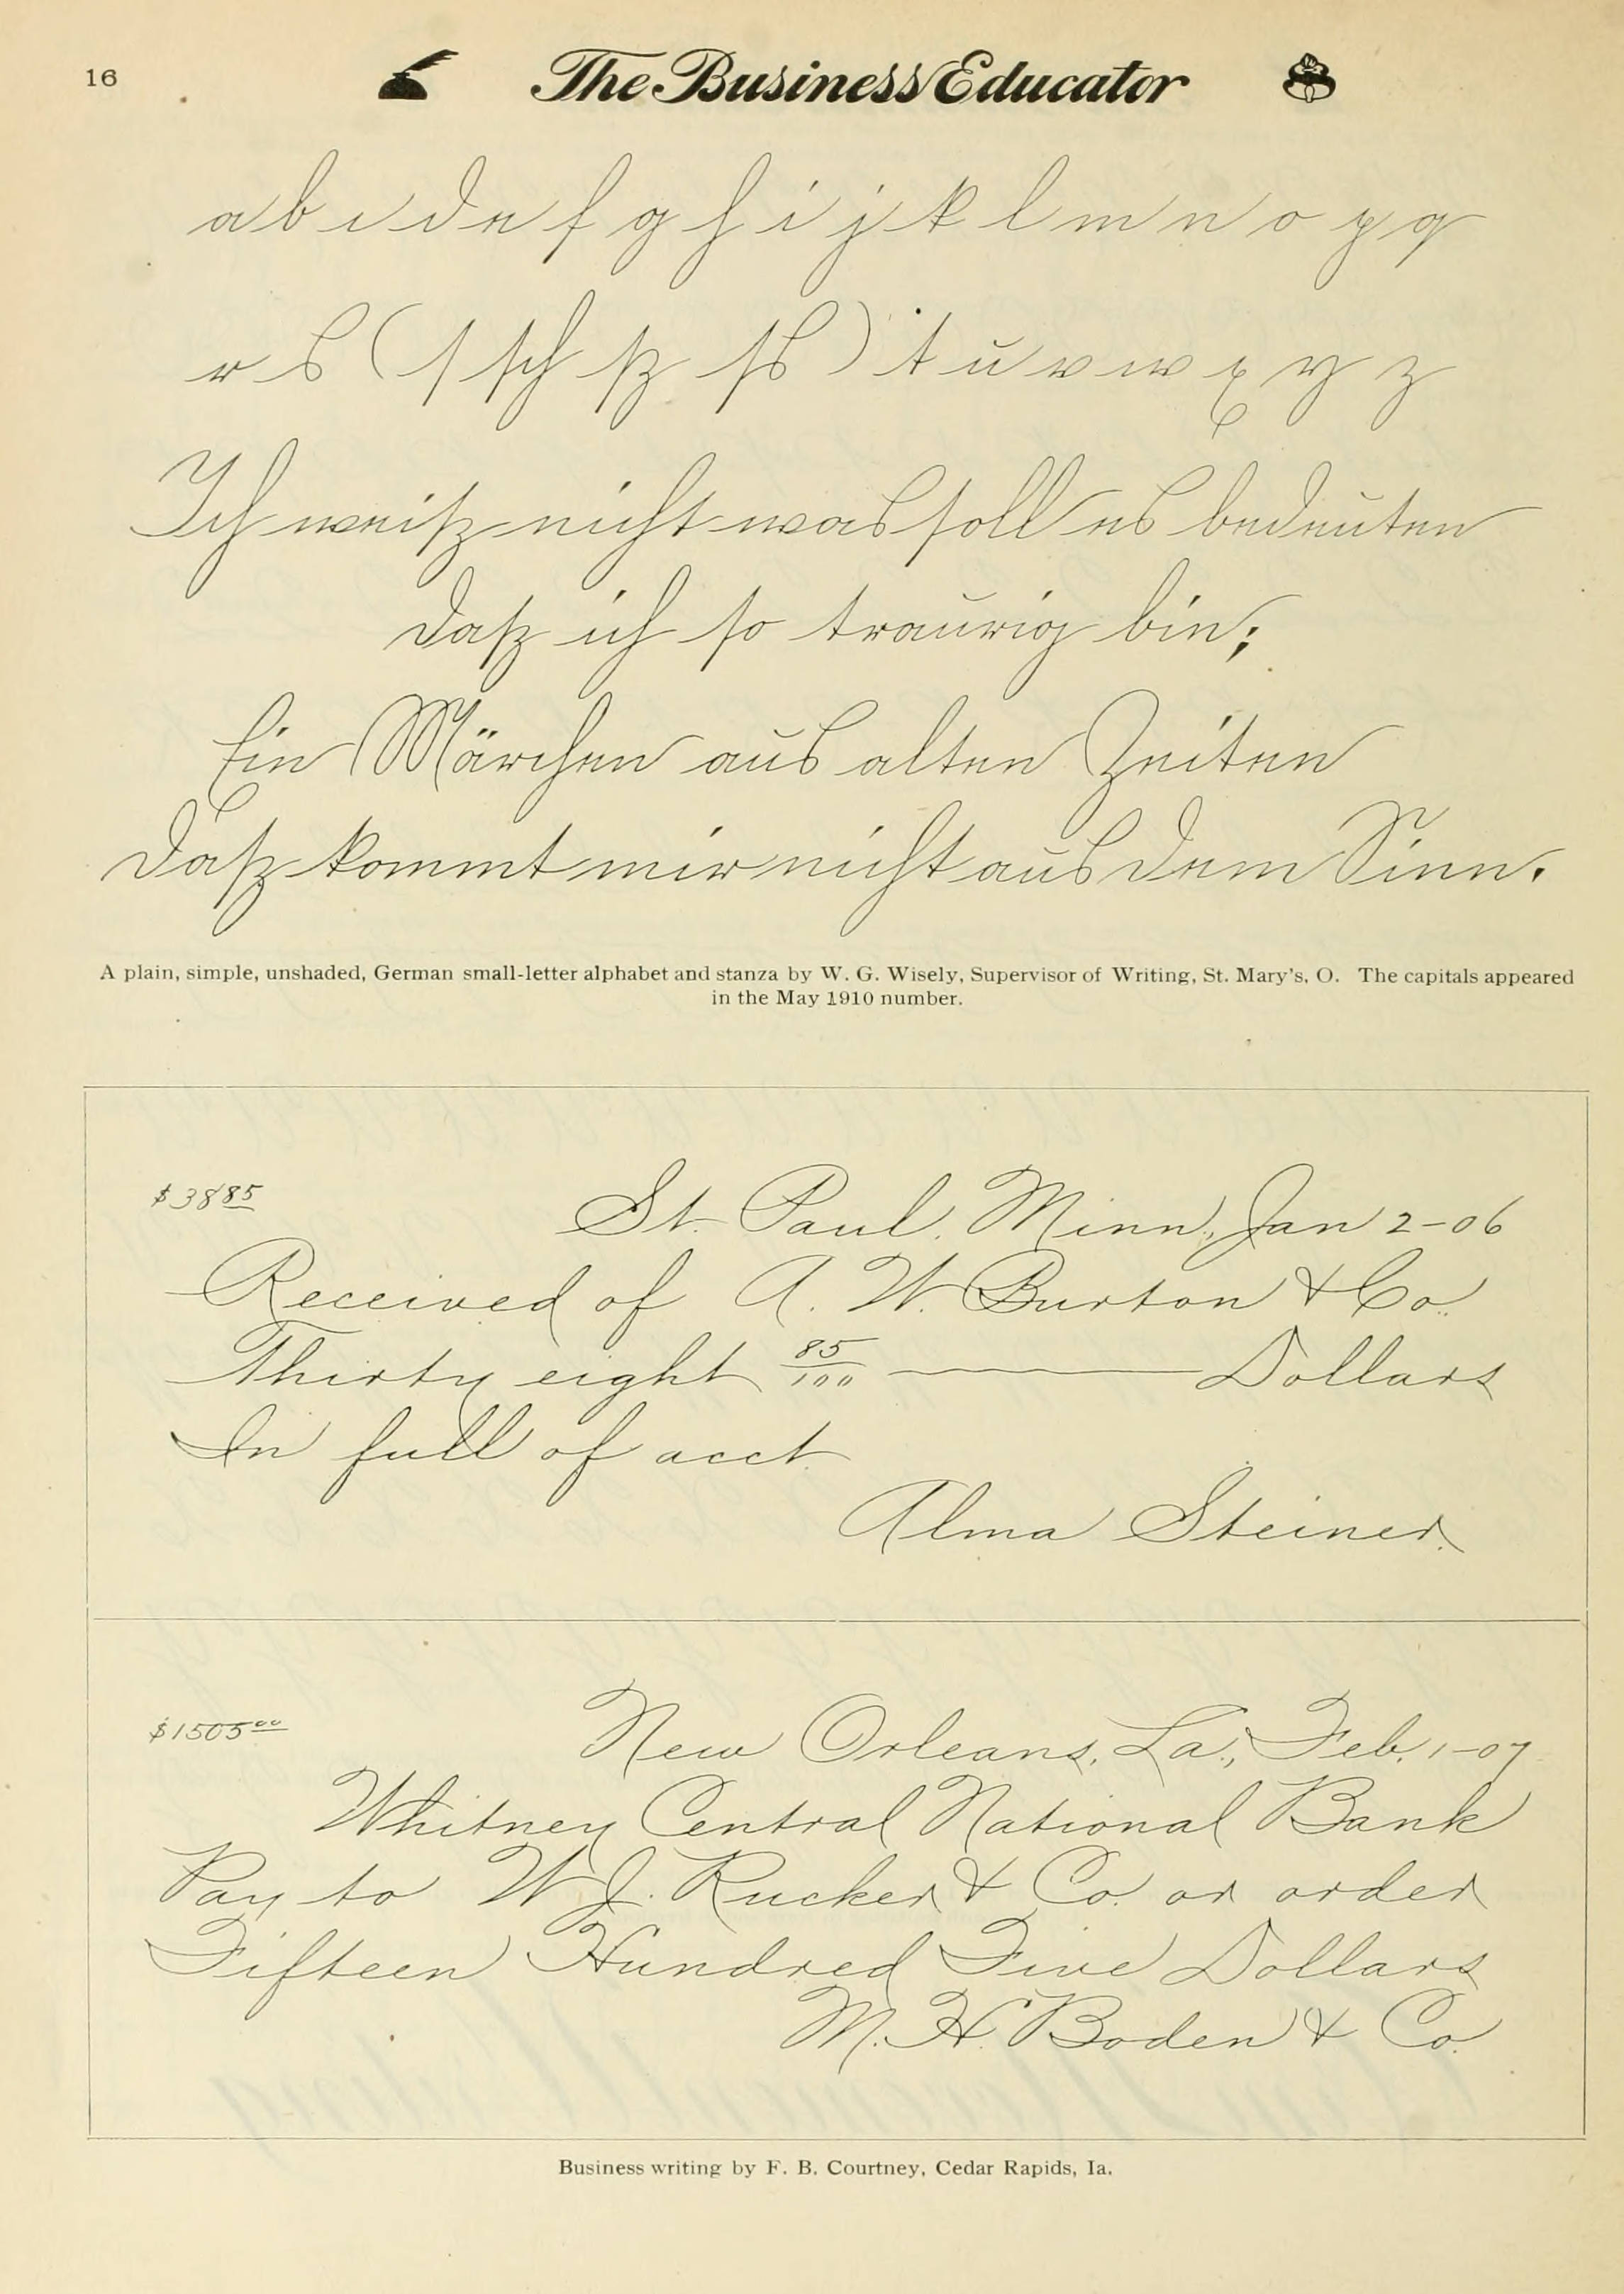 16
The Business Educator
a b c d e f g h i j k l m n o p q
r s ( ſ ſch ſz ſs ) t u v w x y z
Ich weiſz nicht was ſoll es bedeuten
daſz ich ſo traurig bin;
Ein Märchen aus alten Zeiten
daſz kommt mir nicht aus dem Sinn.
A plain, simple, unshaded, German small-letter alphabet and stanza by W. G. Wisely, Supervisor of Writing, St. Mary's, O. The capitals appeared
in the May 1910 number.
$38 85
St. Paul, Minn., Jan 2-06
Received of A. W. Burton & Co.
Thirty eight 85/100 Dollars
In full of acct.
Alma Steiner.
$1505 00
New Orleans, La., Feb. 1-07
Whitney Central National Bank
Pay to W. J. Rucker & Co. or order
Fifteen Hundred Five Dollars
M. H. Boden & Co.
Business writing by F. B. Courtney, Cedar Rapids, Ia.